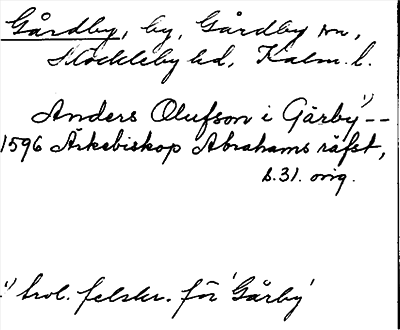 Gårdby, by, Gårdby sn,
Slättebo hd, Kalm. l.
Anders Olufson i Gärby¹) --
1596 Ärkebiskop Abrahams räfst,
s. 31. orig.
¹) trol. felskr. för 'Gårby'